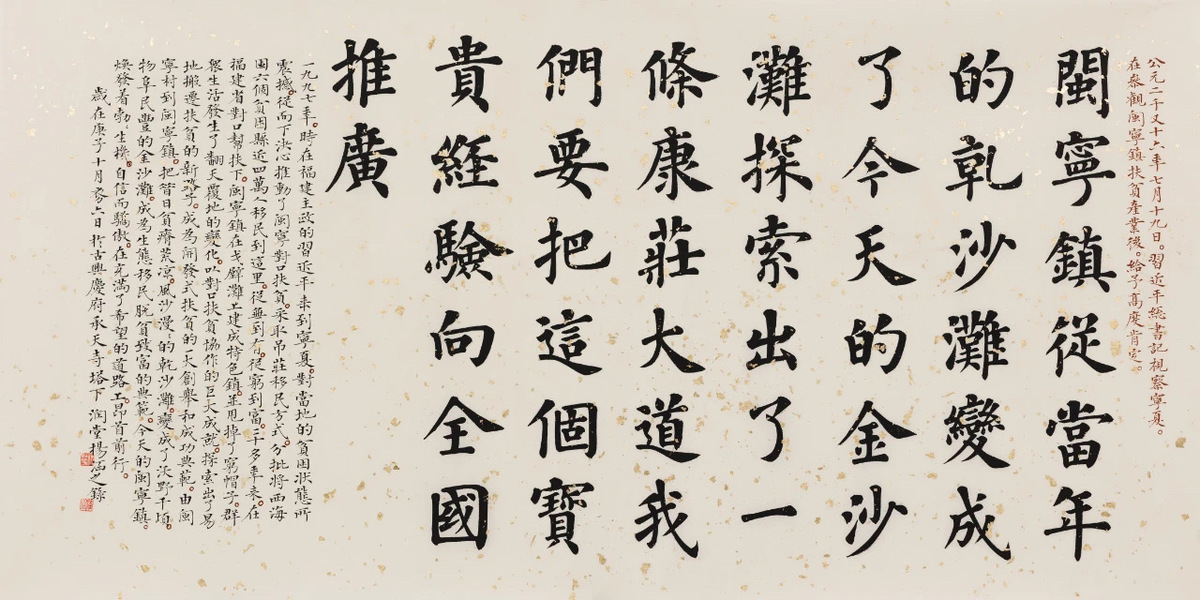 公元二千又十六年七月十九日。習近平總書記視察寧夏。
在參觀閩寧鎮扶貧產業後。給予高度肯定。
閩寧鎮從當年
的乾沙灘變成
了今天的金沙
灘探索出了一
條康莊大道我
們要把這個寶
貴經驗向全國
推廣
一九九七年。時在福建主政的習近平來到寧夏。對當地的貧困狀態所
震撼。從而下決心推動了閩寧對口扶貧。采取吊莊移民方式。分批將西海
固六個貧困縣近四萬人移民到這里。從無到有。從窮到富。二千多年來。在
福建省對口幫扶下。閩寧鎮在戈壁灘上建成特色鎮。並甩掉了窮帽子。群
衆生活發生了翻天覆地的變化。以對口扶貧協作的巨大成就。探索出了易
地搬遷扶貧的新路子。成為開發式扶貧的一大創舉和成功典範。由閩
寧村到閩寧鎮。把昔日貧瘠荒涼。風沙漫漫的乾沙灘。變成了沃野千頃。
物阜民豐的金沙灘。成為生態移民脫貧致富的典範。今天的閩寧鎮。
煥發着勃勃生機。自信而驕傲。在充滿了希望的道路上昂首前行。
歲在庚子十月癸六日於古興慶府承天寺塔下潤堂楊
之錄